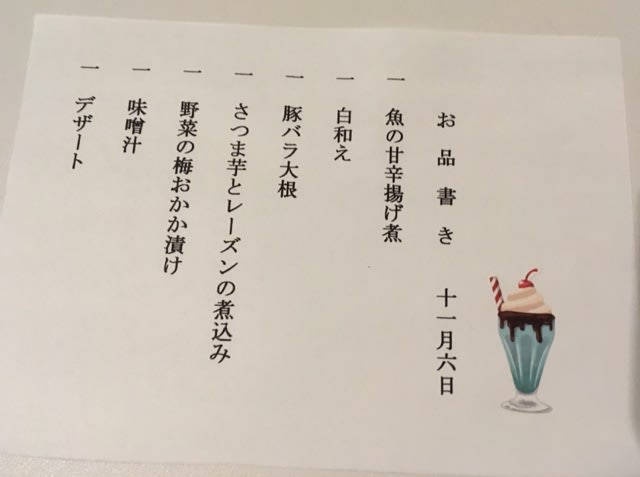 お品書き 十一月六日
一 魚の甘辛揚げ煮
一 白和え
一 豚バラ大根
一 さつま芋とレーズンの煮込み
一 野菜の梅おかか漬け
一 味噌汁
一 デザート